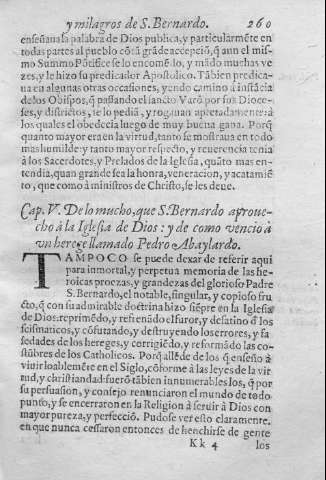 y milagros de S. Bernardo. 260
enseñaua la palabra de Dios publica, y particularmēte en
todas partes al pueblo cō tā grāde accepciō, q̄ aun el mis-
mo Summo Pōtifice se lo encomēdo, y mādo muchas ve-
zes, y le hizo su predicador Apostolico. Tābien predica-
ua en algunas otras occasiones, yendo camino a instācia
de los Obispos, q̄ passando el sancto Varō por sus Dioce-
ses, y districtos, se lo pediā, y rogauan apretadamente: a
los quales el obedecia luego de muy buena gana. Porq̄
quanto mayor era en la virtud, tanto se mostraua en todo
mas humilde: y tanto mayor respecto, y reuerencia tenia
à los Sacerdotes, y Prelados de la Iglesia, quāto mas en-
tendia, quan grande sea la honra, veneracion, y acatamiē-
to, que como à ministros de Christo, se les deue.
Cap. V. De lo mucho, que S. Bernardo aproue-
chò à la Iglesia de Dios: y de como vencio à
vn herege llamado Pedro Abaylardo.
TAMPOCO se puede dexar de referir aqui
para inmortal, y perpetua memoria de las he-
roicas proezas, y grandezas del glorioso Padre
S. Bernardo, el notable, singular, y copioso fru-
cto, q̄ con su admirable doctrina hizo siēpre en la Iglesia
de Dios: reprimēdo, y refrenādo el furor, y desatino d̄ los
scismaticos, y cōfutando, y destruyendo los errores, y fa
sedades de los hereges, y corrigiēdo, y reformādo las co-
stūbres de los Catholicos. Porq̄ allēde de los q̄ enseño à
viuir loablemēte en el Siglo, cōforme à las leyes de la vir
tud, y christiandad: fuerō tābien innumerables los, q̄ por
su persuasion, y consejo renunciaron el mundo de todo
punto, y se encerraron en la Religion à seruir à Dios con
mayor pureza, y perfecciō. Pudose ver esto claramente,
en que nunca cessaron entonces de henchirse de gente
Kk 4 los